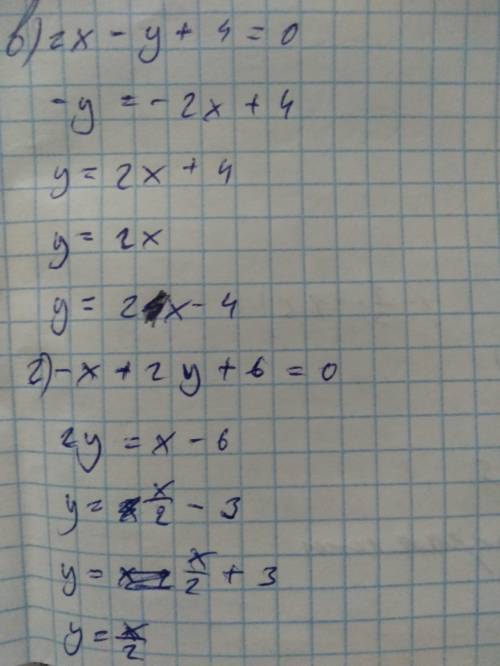 в) 2x - y + 4 = 0
-y = -2x + 4
y = 2x + 4
y = 2x
y = 2x - 4
г) -x + 2y + 6 = 0
2y = x - 6
y = x/2 - 3
y = x/2 + 3
y = x/2